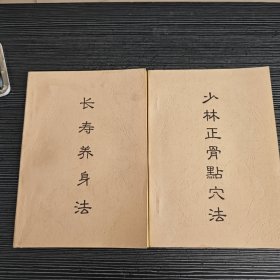 长寿养身法
少林正骨點穴法